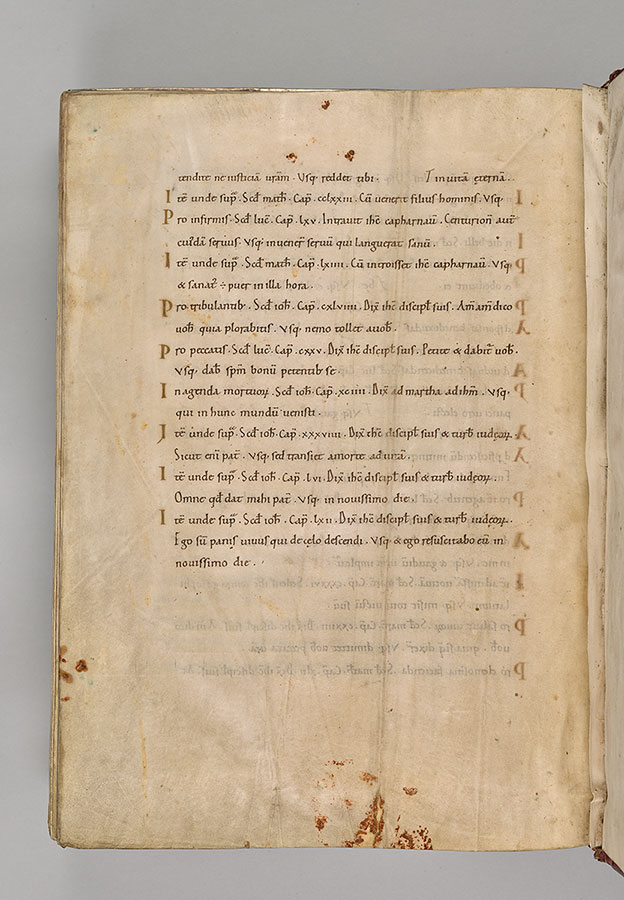 tendite ne iusticiā urām . Vsq; reddet tibi . T in uitā eternā .
I tē unde sup̄ . Scd̄ math̄ . Cap̄ . cclxxiii . Cū uenerit filius hominis . Vsq;
P ro infirmis . Scd̄ luc̄ . Cap̄ . lxv . Intrauit ihc̄ capharnaū . Centurion̄ aut̄
cuidā seruus . Vsq; inuener̄ seruū qui languerat sanū .
I tē unde sup̄ . Scd̄ math̄ . Cap̄ . lxiiii . Cū introisset ihc̄ capharnaū . Vsq;
& sanat̄ ÷ puer in illa hora .
P ro tribulantib; . Scd̄ ioh̄ . Cap̄ . cxlviii . Dix̄ ihc̄ discipł suis . Am̄ am̄ dico
uob̄ quia plorabitis . Vsq; nemo tollet auob̄ .
P ro peccatis . Scd̄ luc̄ . Cap̄ . cxxv . Dix̄ ihc̄ discipł suis . Petite & dabit̄ uob̄ .
Vsq; dab̄ spm̄ bonū petentib; se .
I n agenda mortuoꝝ . Scd̄ ioh̄ . Cap̄ . xciiii . Dix̄ ad martha ad ihm̄ . Vsq;
qui in hunc mundū uenisti .
I tē unde sup̄ . Scd̄ ioh̄ . Cap̄ . xxxviiii . Dix̄ ihc̄ discipł suis & turb̄ iudęoꝝ .
Sicut eni pat̄ . Vsq; sed transiet amorte ad uitā .
I tē unde sup̄ . Scd̄ ioh̄ . Cap̄ . lvi . Dix̄ ihc̄ discipł suis & turb̄ iudęoꝝ .
Omne qd̄ dat mihi pat̄ . Vsq; in nouissimo die .
I tē unde sup̄ . Scd̄ ioh̄ . Cap̄ . lxii . Dix̄ ihc̄ discipł suis & turb̄ iudęoꝝ .
Ego sū panis uiuus qui de cęlo descendi . Vsq; & ego resuscitabo eū in
nouissimo die .